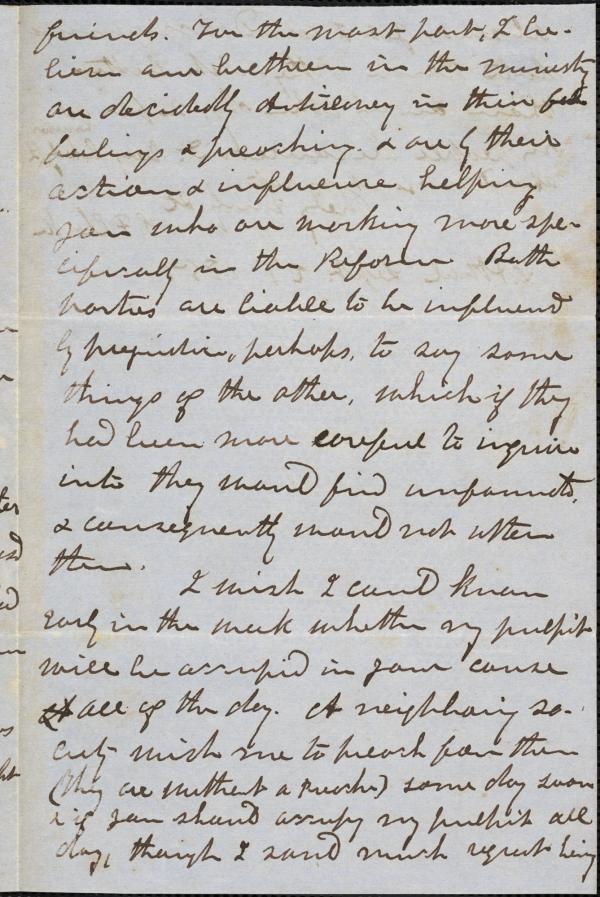 friends. For the most part, I be-
lieve our brethren in the ministry
are decidedly Antislavery in their
feelings & preaching. & are by their
action & influence helping
you who are working more spe-
cifically in the Reform. Both
parties are liable to be influenced
by prejudice, perhaps, to say some
things of the other, which if they
had been more careful to inquire
into they would find unfounded,
& consequently would not utter
them.
I wish I could know
early in the week whether my pulpit
will be occupied in your cause
all of the day. A neighboring so-
ciety wish me to preach for them
(they are without a Preacher) some day soon
& if you should occupy my pulpit all
day, though I should much regret being